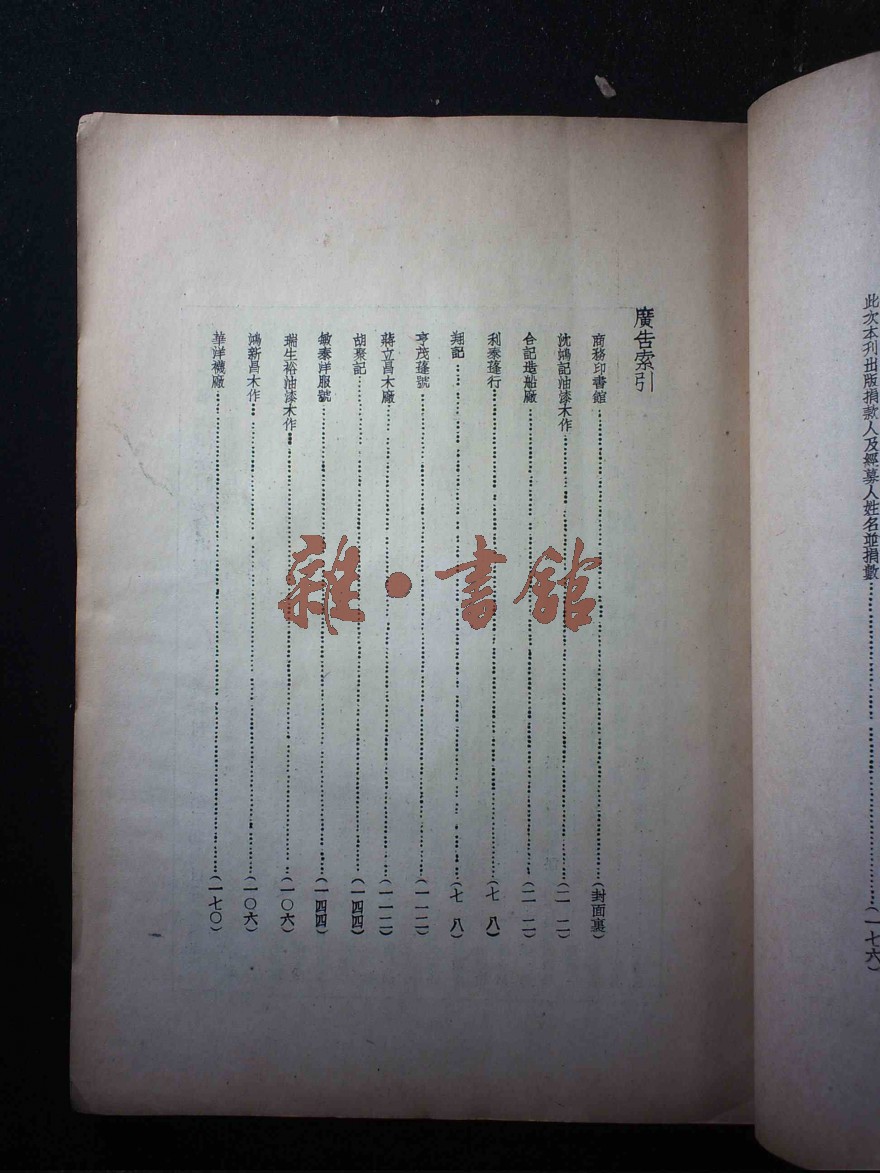 此次本刊出版捐款人及經募人姓名並捐數……(一七六)
廣告索引
商務印書館……(封面裏)
沈鴻記油漆木作……(二一二)
合記造船廠……(二一二)
利泰蓬行……(七八)
翔記……(七八)
亨茂蓬號……(一一二)
蔣立昌木廠……(一一二)
胡聚記……(一四四)
敏泰洋服號……(一四四)
瑞生裕油漆木作……(一〇六)
鴻新昌木作……(一〇六)
華洋襪廠……(一七〇)
雜·書館